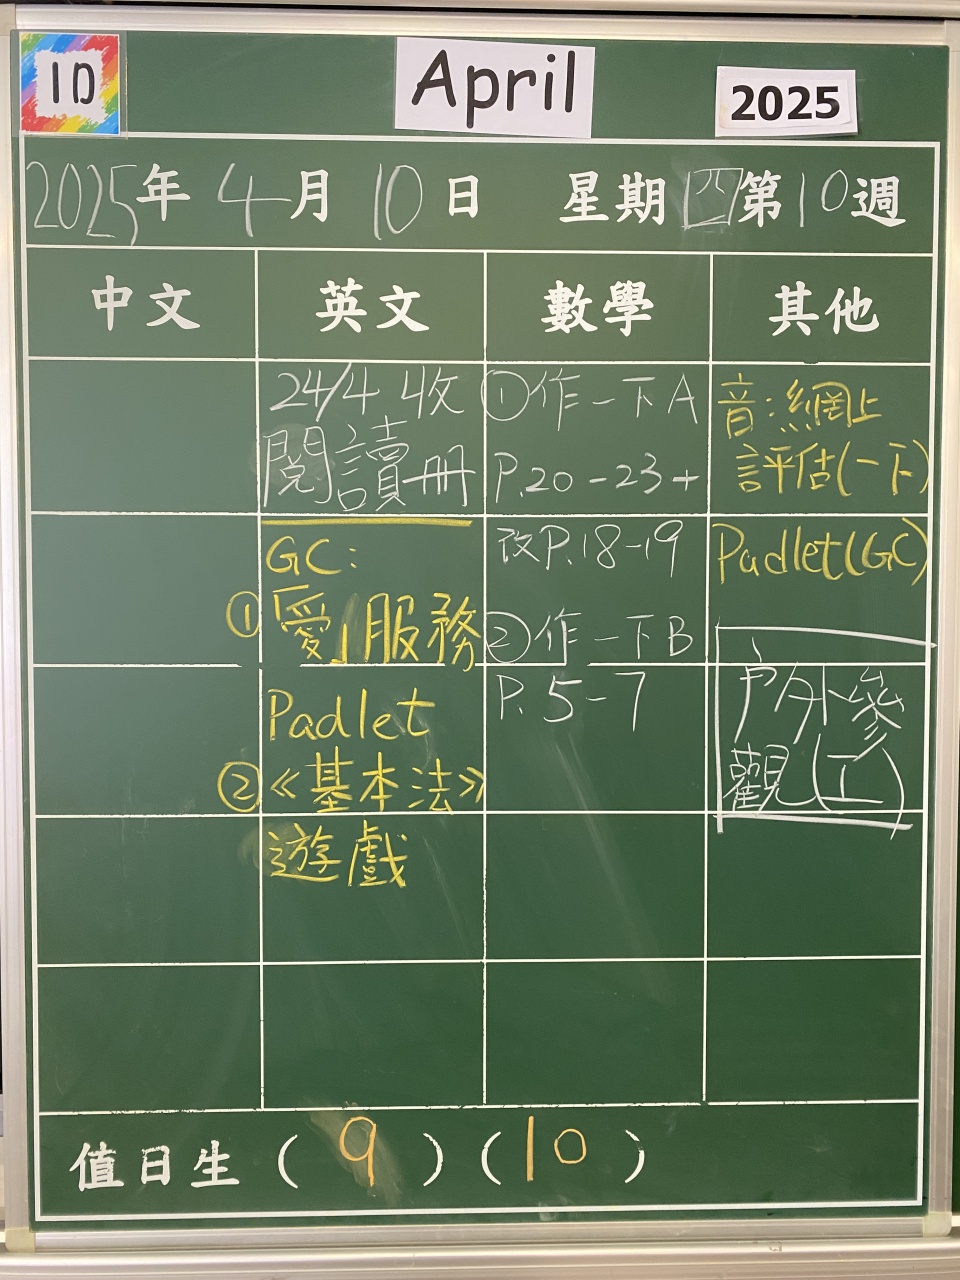 1D
April
2025
2025年4月10日 星期四第10週
中文 英文 數學 其他
24/4 收
閱讀册
GC:
①「愛」服務
Padlet
②《基本法》
遊戲
①作一下A
P.20-23+
改P.18-19
②作一下B
P.5-7
音:網上
評估(一下)
Padlet(GC)
戶外參
觀(工)
值日生(9)(10)